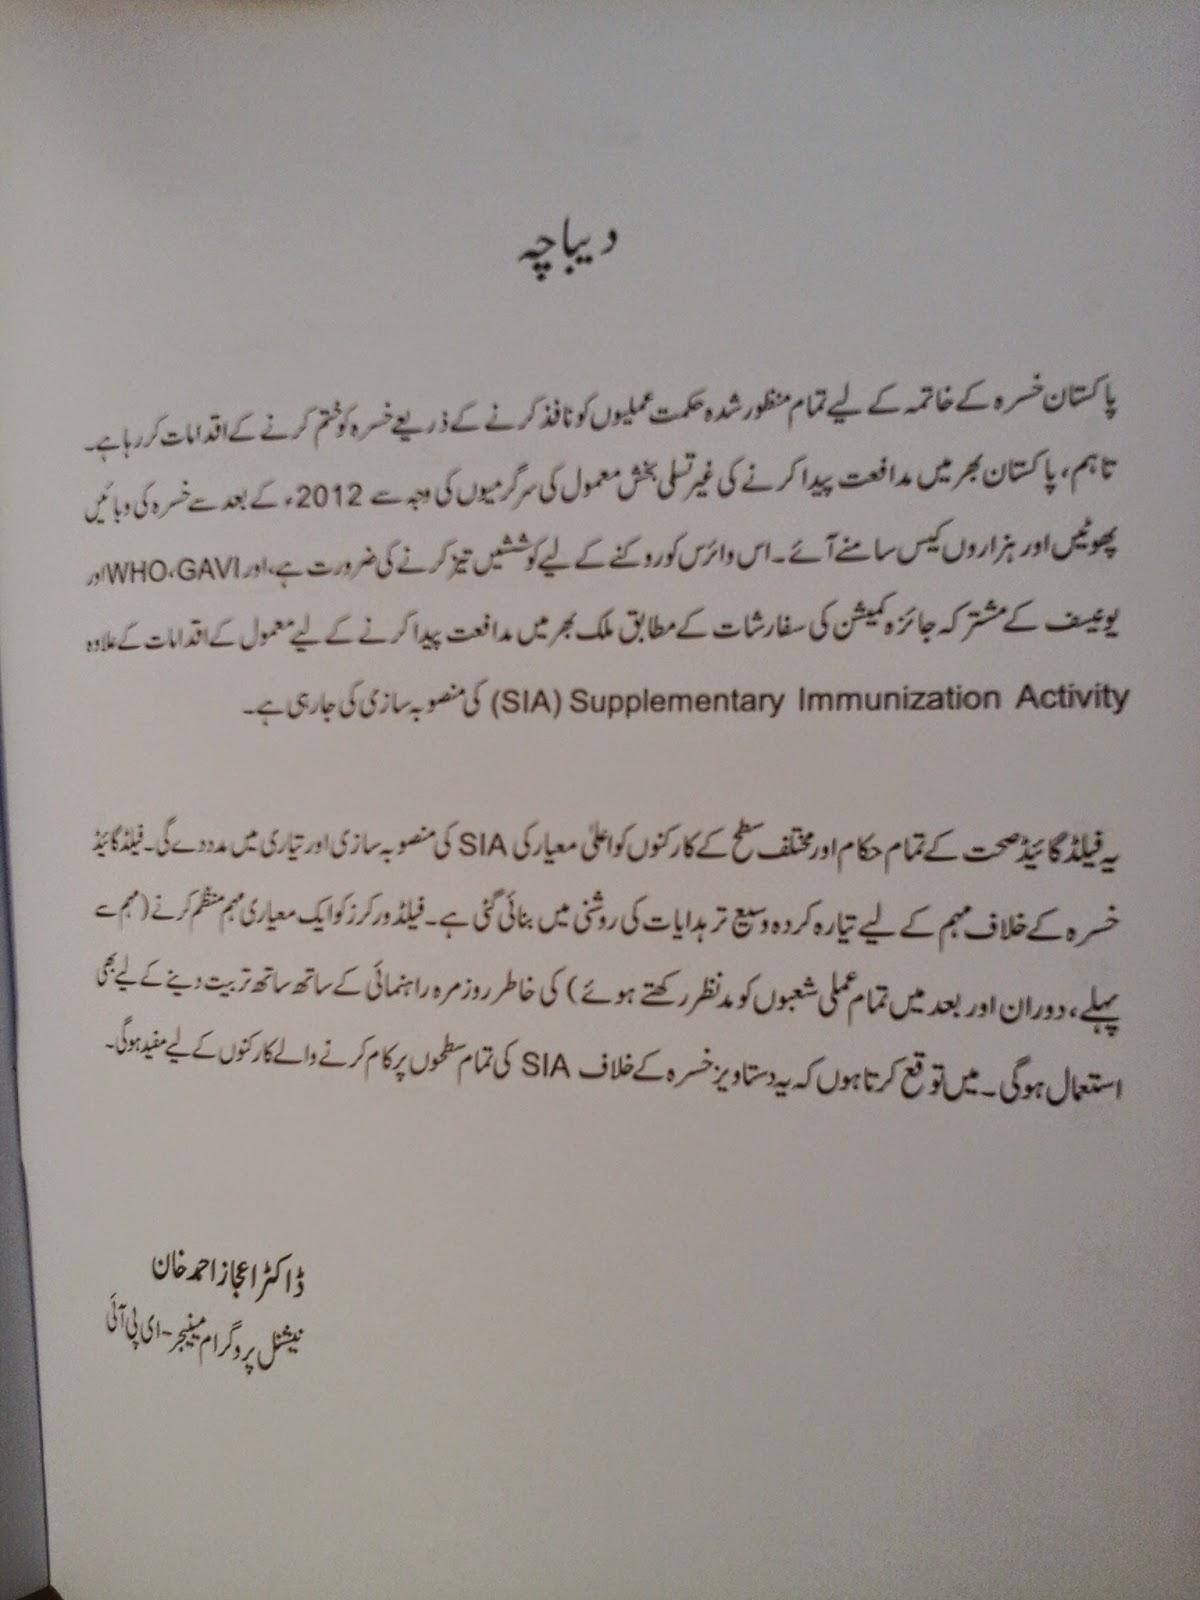 دیباچہ
پاکستان خسرہ کے خاتمہ کے لیے تمام منظور شدہ حکمت عملیوں کو نافذ کرنے کے ذریعے خسرہ کو ختم کرنے کے اقدامات کر رہا ہے۔
تاہم، پاکستان بھر میں مدافعت پیدا کرنے کی غیر تسلی بخش معمول کی سرگرمیوں کی وجہ سے 2012ء کے بعد سے خسرہ کی وبائیں
پھوٹیں اور ہزاروں کیس سامنے آئے۔ اس وائرس کو روکنے کے لیے کوششیں تیز کرنے کی ضرورت ہے، اور WHO، GAVI اور
یونیسف کے مشترکہ جائزہ کمیشن کی سفارشات کے مطابق ملک بھر میں مدافعت پیدا کرنے کے لیے معمول کے اقدامات کے علاوہ
Supplementary Immunization Activity (SIA) کی منصوبہ سازی کی جا رہی ہے۔
یہ فیلڈ گائیڈ صحت کے تمام حکام اور مختلف سطح کے کارکنوں کو اعلیٰ معیار کی SIA کی منصوبہ سازی اور تیاری میں مدد دے گی۔ فیلڈ گائیڈ
خسرہ کے خلاف مہم کے لیے تیارہ کردہ وسیع تر ہدایات کی روشنی میں بنائی گئی ہے۔ فیلڈ ورکرز کو ایک معیاری مہم منظم کرنے (مہم سے
پہلے، دوران اور بعد میں تمام عملی شعبوں کو مدنظر رکھتے ہوئے) کی خاطر روزمرہ راہنمائی کے ساتھ ساتھ تربیت دینے کے لیے بھی
استعمال ہوگی۔ میں توقع کرتا ہوں کہ یہ دستاویز خسرہ کے خلاف SIA کی تمام سطحوں پر کام کرنے والے کارکنوں کے لیے مفید ہوگی۔
ڈاکٹر اعجاز احمد خان
نیشنل پروگرام مینیجر-ای پی آئی